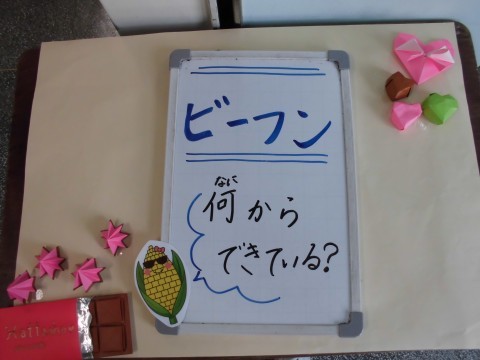 ビーフン
なに
何から
できている?